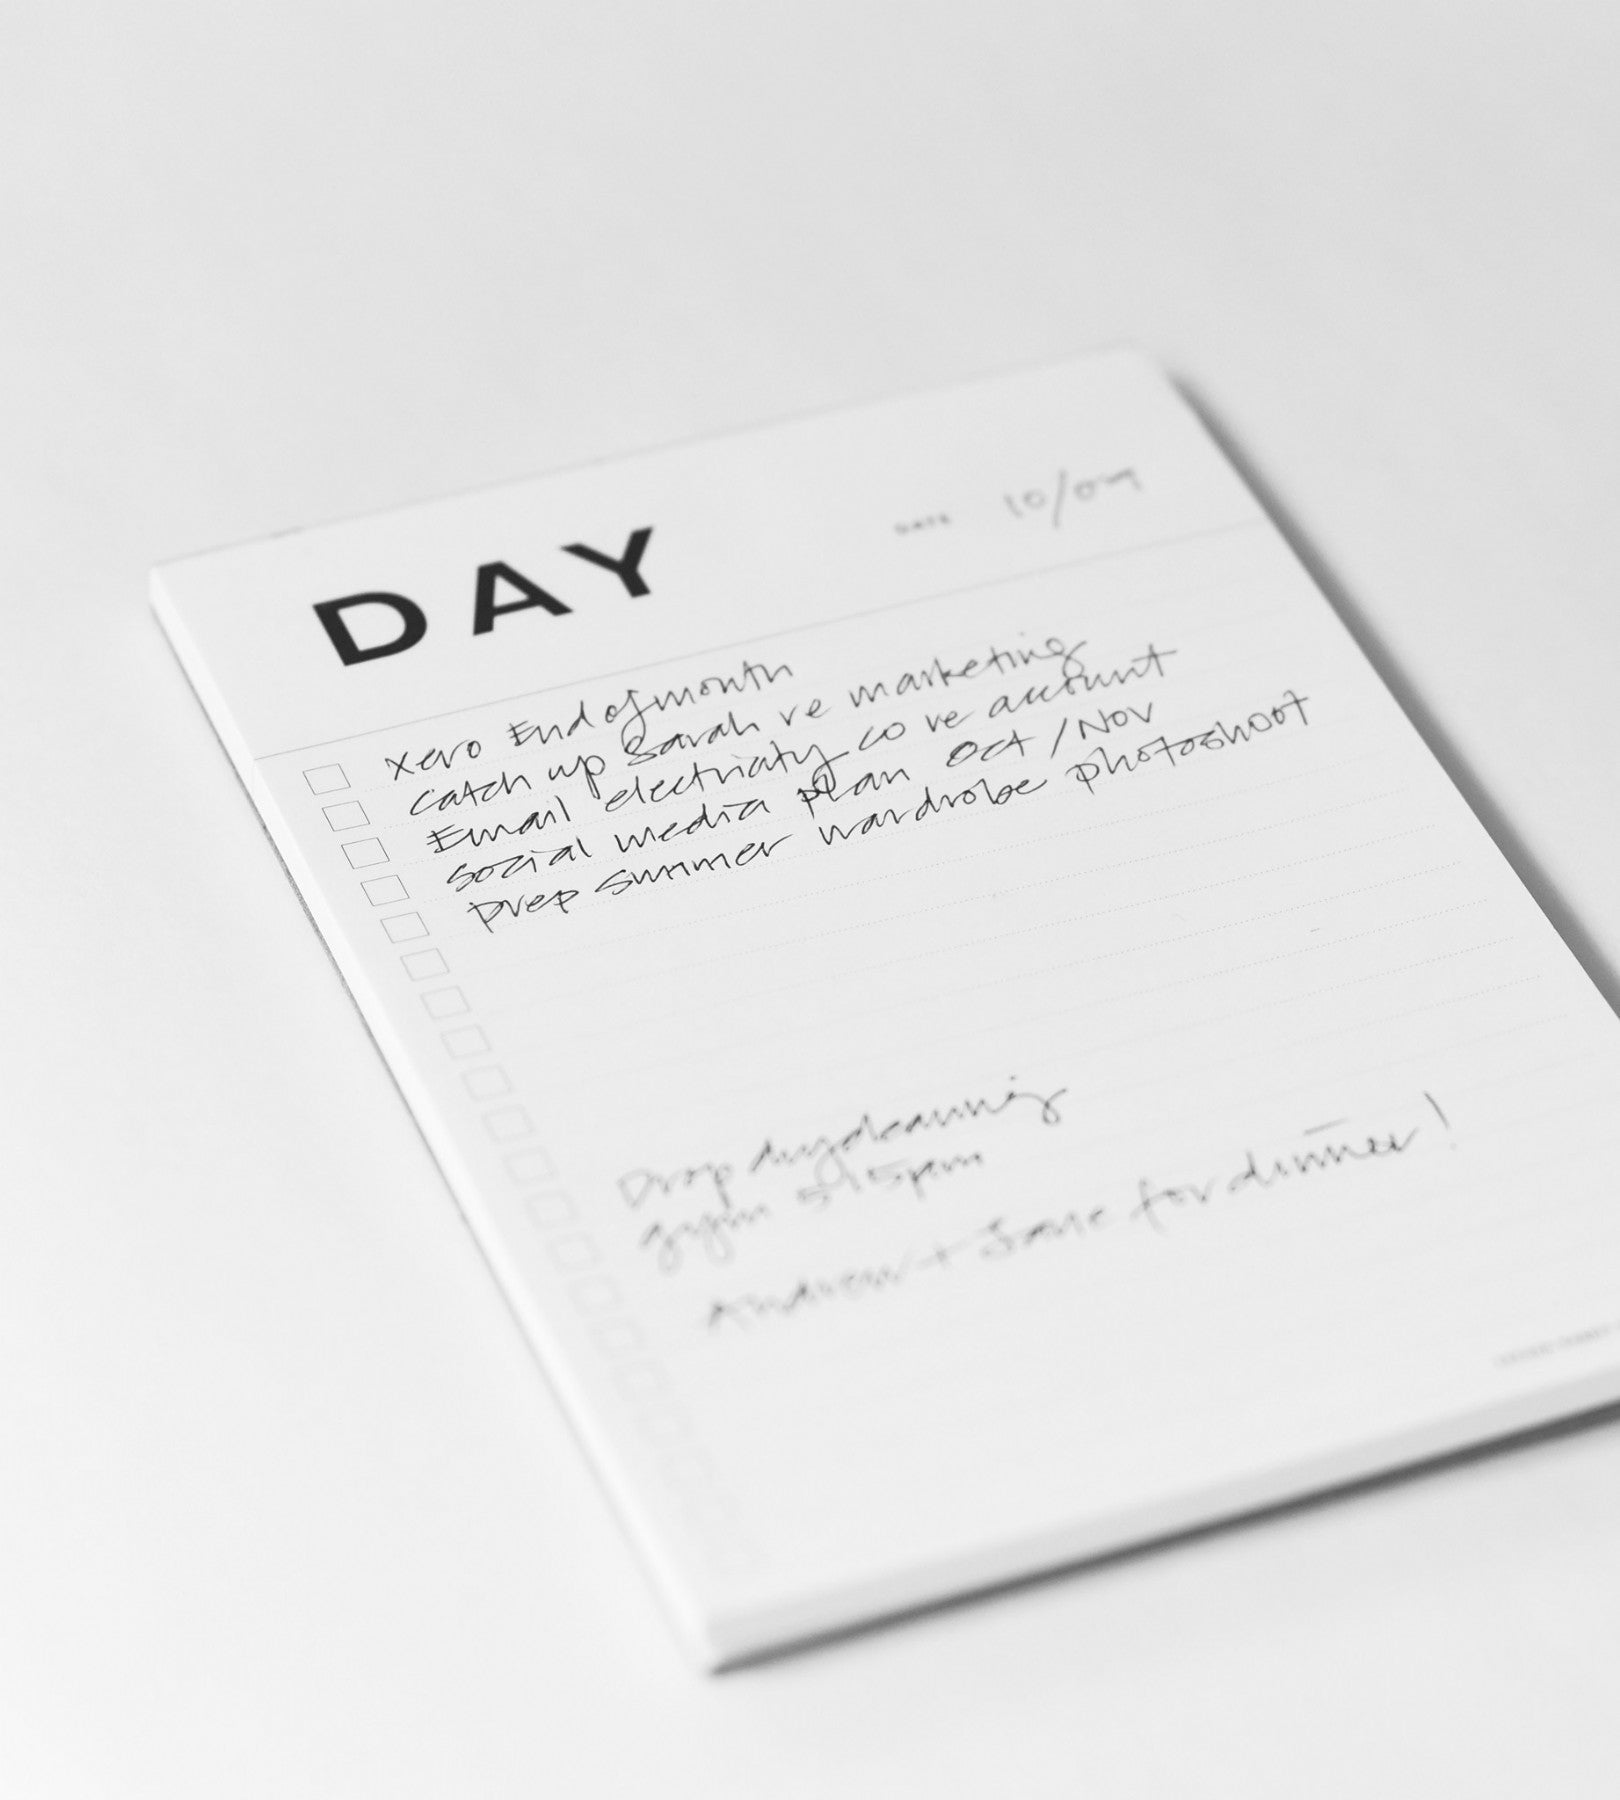 DAY
DATE 10/09
Xero End of month
Catch up Sarah re marketing
Email electricity co re account
Social media plan Oct / Nov
Prep summer wardrobe photoshoot
Drop drycleaning
gym 5.15pm
Andrew + Jane for dinner!